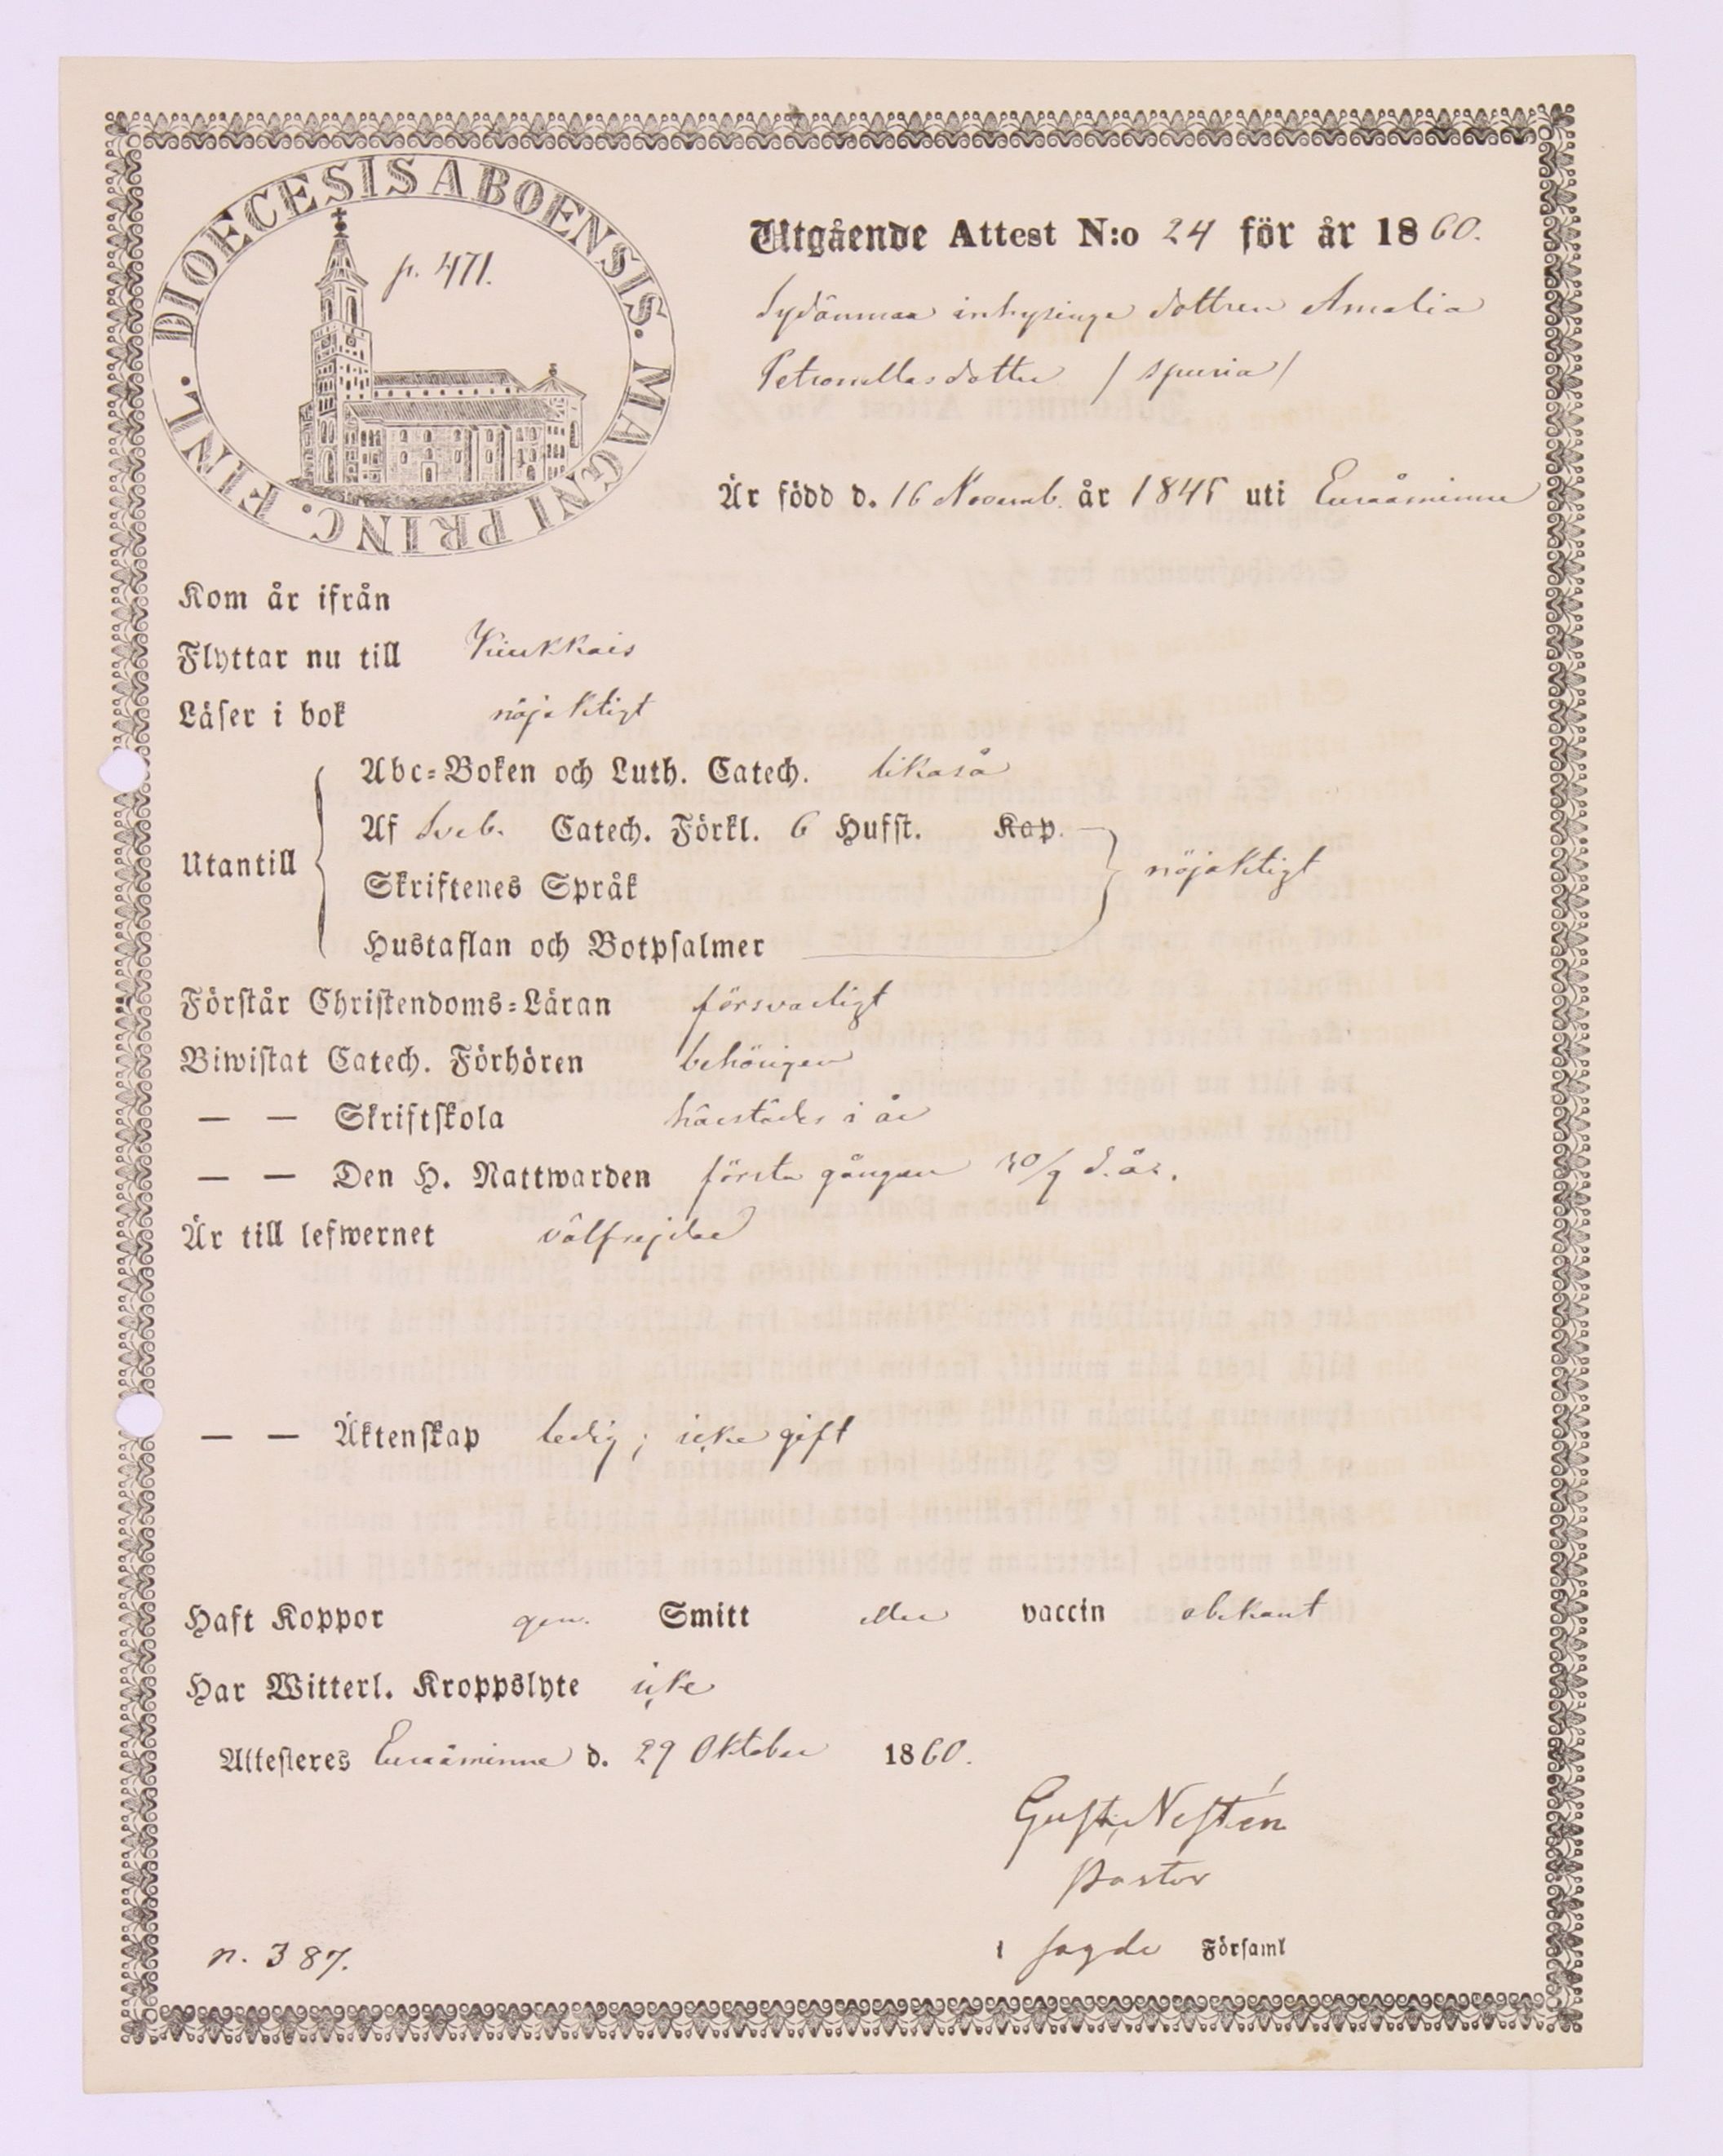 DIOECESIS ABOENSIS. MAGNI PRINC. FINL.
p. 471.
Utgående Attest N:o 24 för år 1860.
Sydänmaa inhysinge dottren Amalia
Petronellasdotter /spuria/
Är född d. 16 Novemb. år 1845 uti Euraåminne
Kom år ifrån
Flyttar nu till Kiukkais
Läser i bok nöjaktigt
Utantill
Abc-Boken och Luth. Catech. likaså
Af Sveb. Catech. Förkl. 6 Hufst. Kap.
Skriftenes Språk
Hustaflan och Botpsalmer
nöjaktigt
Förstår Christendoms-Läran försvarligt
Biwistat Catech. Förhören behörigen
— — Skriftskola härstädes i år
— — Den H. Nattwarden första gången 30/9 d. år.
Är till lefwernet välfrejdad
— — Äktenskap ledig; icke gift
Haft Koppor gen. Smitt eller vaccin obekant
Har Witterl. Kroppslyte icke
Attesteres Euraåminne d. 29 Oktober 1860.
Gust. Nestén
Pastor
i sagde Församl
n. 387.